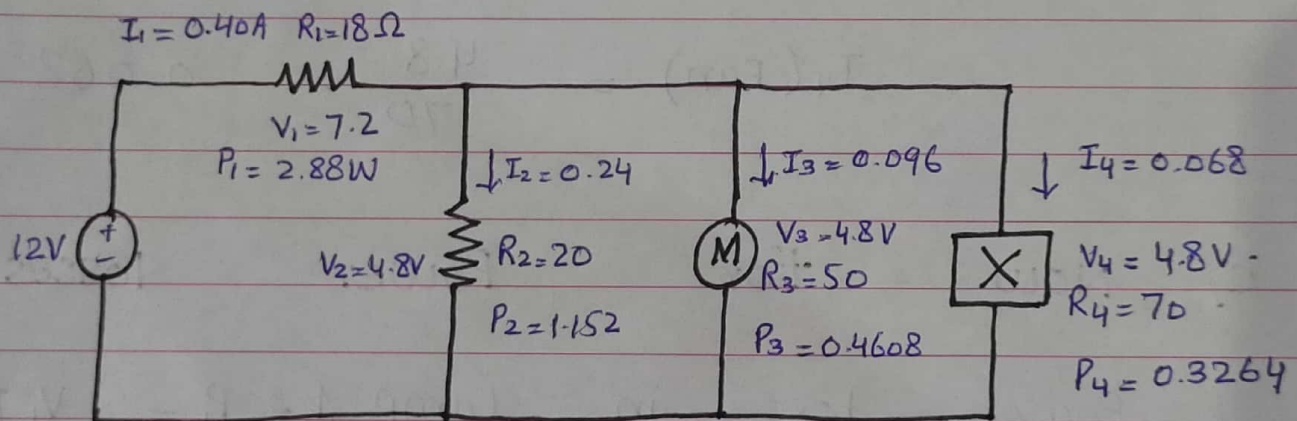 I1 = 0.40A R1=18Ω
V1 = 7.2
P1 = 2.88W
12V
+
-
I2 = 0.24
V2=4.8V
R2=20
P2=1.152
I3 = 0.096
M
V3=4.8V
R3=50
P3 = 0.4608
I4 = 0.068
X
V4 = 4.8V
R4 = 70
P4 = 0.3264